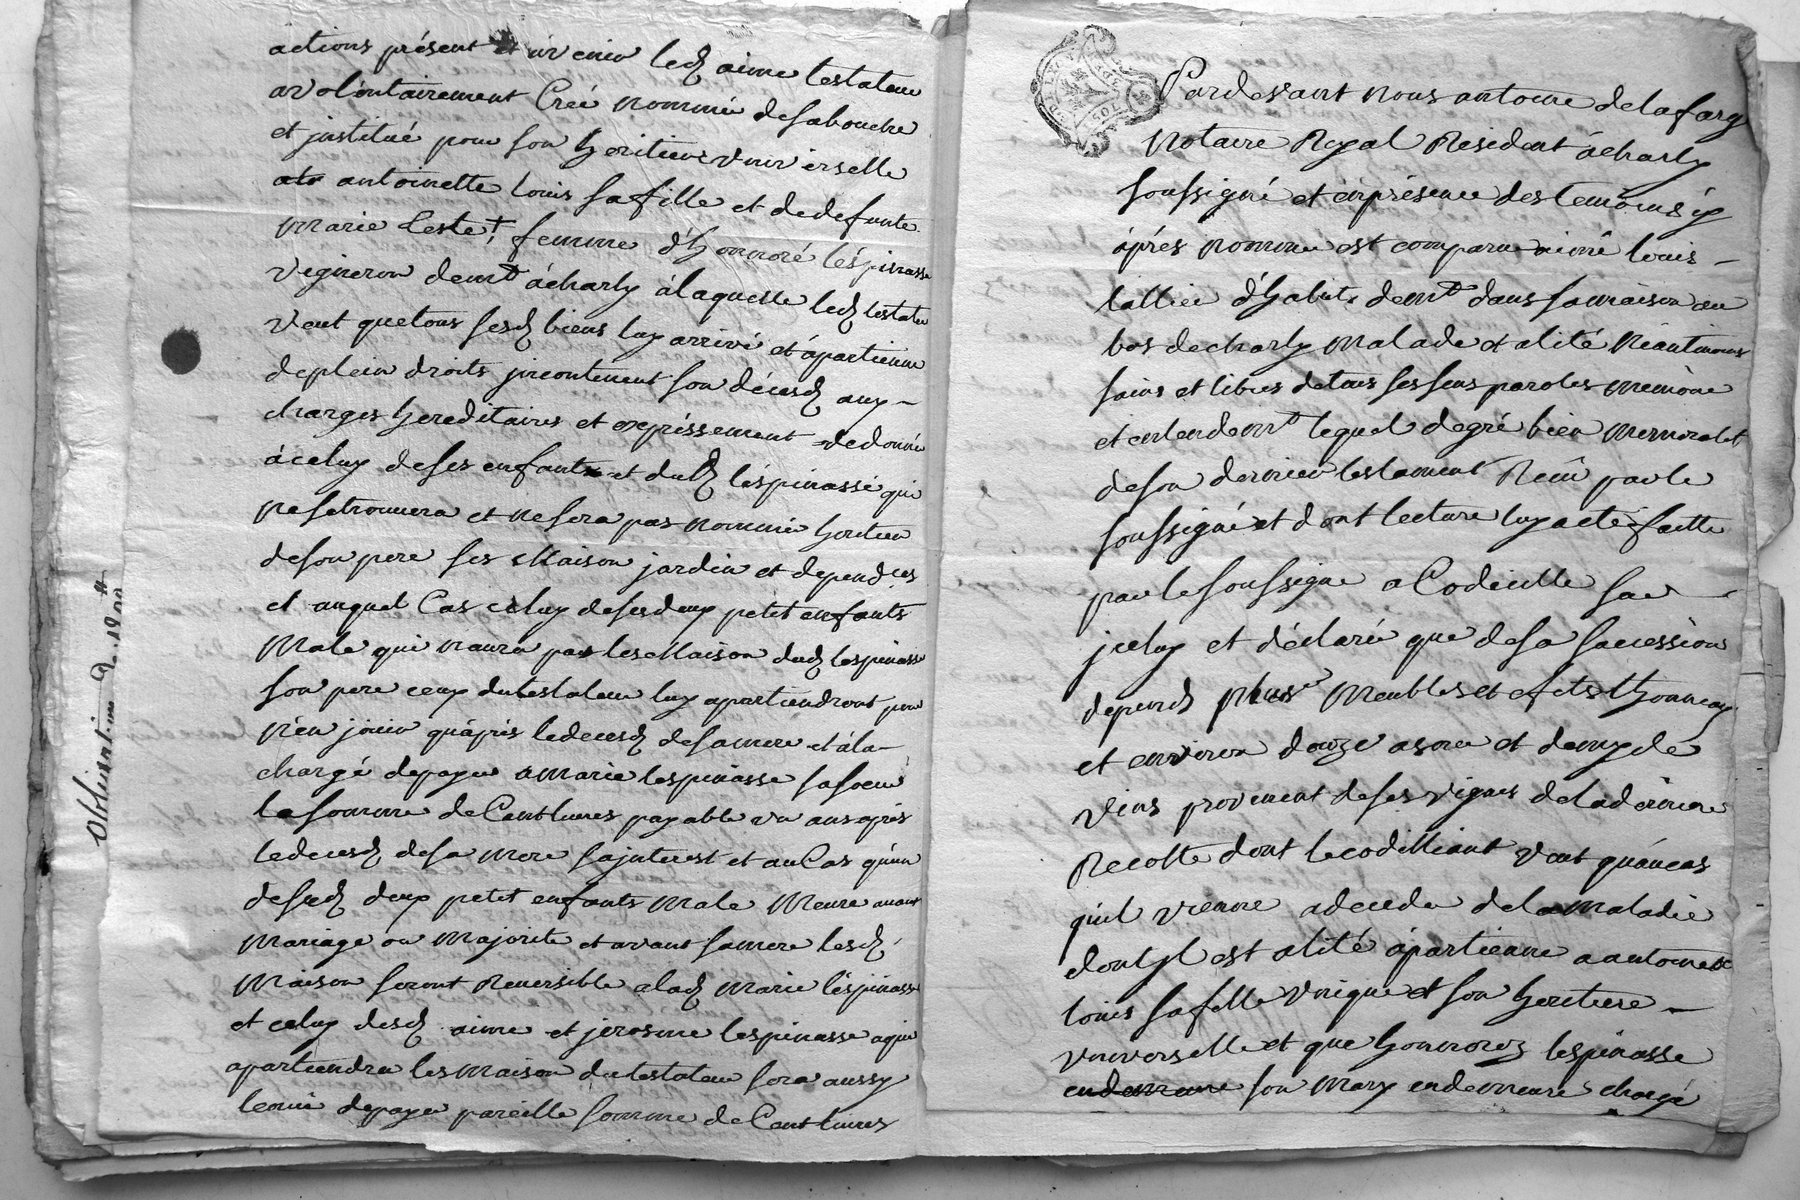 actions présent et avenir led aime testateur
a volontairement Creé nommé de sa bouche
et jnstitué pour son heritiere vniverselle
antoinette louis sa fille et de defunte
marie Leste femme d'honnoré léspinasse
vigneron demt à charly à laquelle led testateur
veut que tous sesd biens luy arrivé et ápartienne
de plein droits jncontenent son décesd aux
charges hereditaires et expréssement de donné
à celuy de ses enfants et dud léspinasse qui
ne se trouvera et ne sera pas nommé heritier
de son pere ses Maison jardin et dependces
et auquel Cas celuy de ses deux petit enfants
Male qui naura pas les Maison dud lespinasse
son pere ceux du testateur luy apartiendront pour
n'en jouir quáprés le decesd de sa mere et à la
chargé de payer a Marie lespinasse sa soeur
la somme de Cent livres payable vn ans aprés
le decesd de sa mere sa jnterest et au Cas qu'un
de sesd deux petit enfants Male Meure avant
Mariage ou Majorite et avant sa mere lesd
Maison seront Reversible a lad Marie léspinasse
et celuy desd aime et jerosme lespinasse a qui
apartiendra les Maison du testateur sera aussy
tenu de payer pareille somme de Cent livres
Obligation de 1200 #
Pardevant nous antoine delafarg
Notaire Royal Resident à charly
soussigné et en présence des temoins cy
áprés nommé est comparu aimé louis
tallieur d'habits demt dans sa maison au
bas de charly Malade et alité Néantmoins
sains et libres de tous ses sens paroles memoire
et entendemt lequel de gré bien memoratif
de son dernier testament Reçu par le
soussigné et dont lecture luy a été faitte
par le soussigne a Codicille sur
jceluy et déclaré que de sa sucession
depend plusrs Meubles et efets thonneaux
et environ douze asnée et demy de
vins provenent de ses vignes de la derniere
Recolte dont le codicilliant veut quáucas
quil vienne a deceder de la maladie
dont jl est alité ápartienne a antoinette
louis sa fille vnique et son heritiere
vniverselle et que honnoré lespinasse
son Mary en demeure chargé